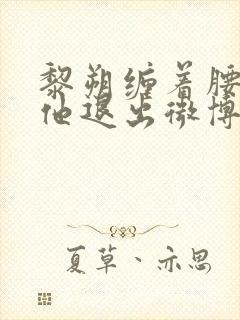 黎朔缠着腰
他退出微博
夏草、亦思